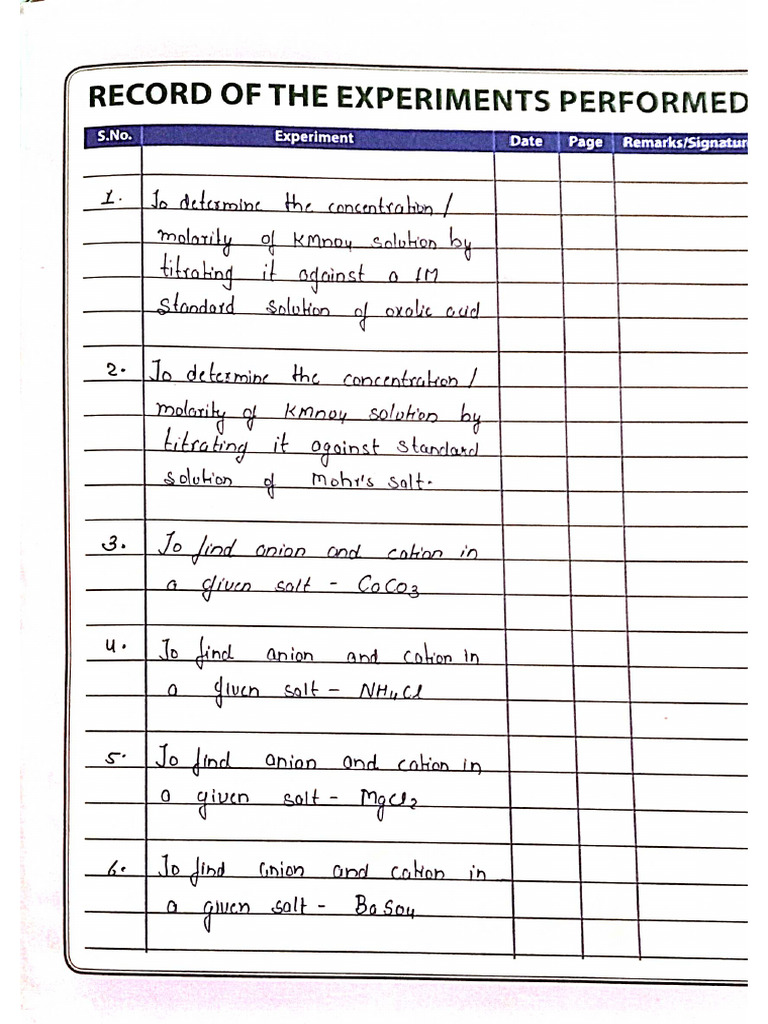 RECORD OF THE EXPERIMENTS PERFORMED
S.No. Experiment Date Page Remarks/Signatur
1. To determine the concentration /
molarity of KMnO4 solution by
titrating it against a 1M
standard solution of oxalic acid
2. To determine the concentration /
molarity of KMnO4 solution by
titrating it against standard
solution of Mohr's salt.
3. To find anion and cation in
a given salt - CaCO3
4. To find anion and cation in
a given salt - NH4Cl
5. To find anion and cation in
a given salt - MgCl2
6. To find anion and cation in
a given salt - BaSO4